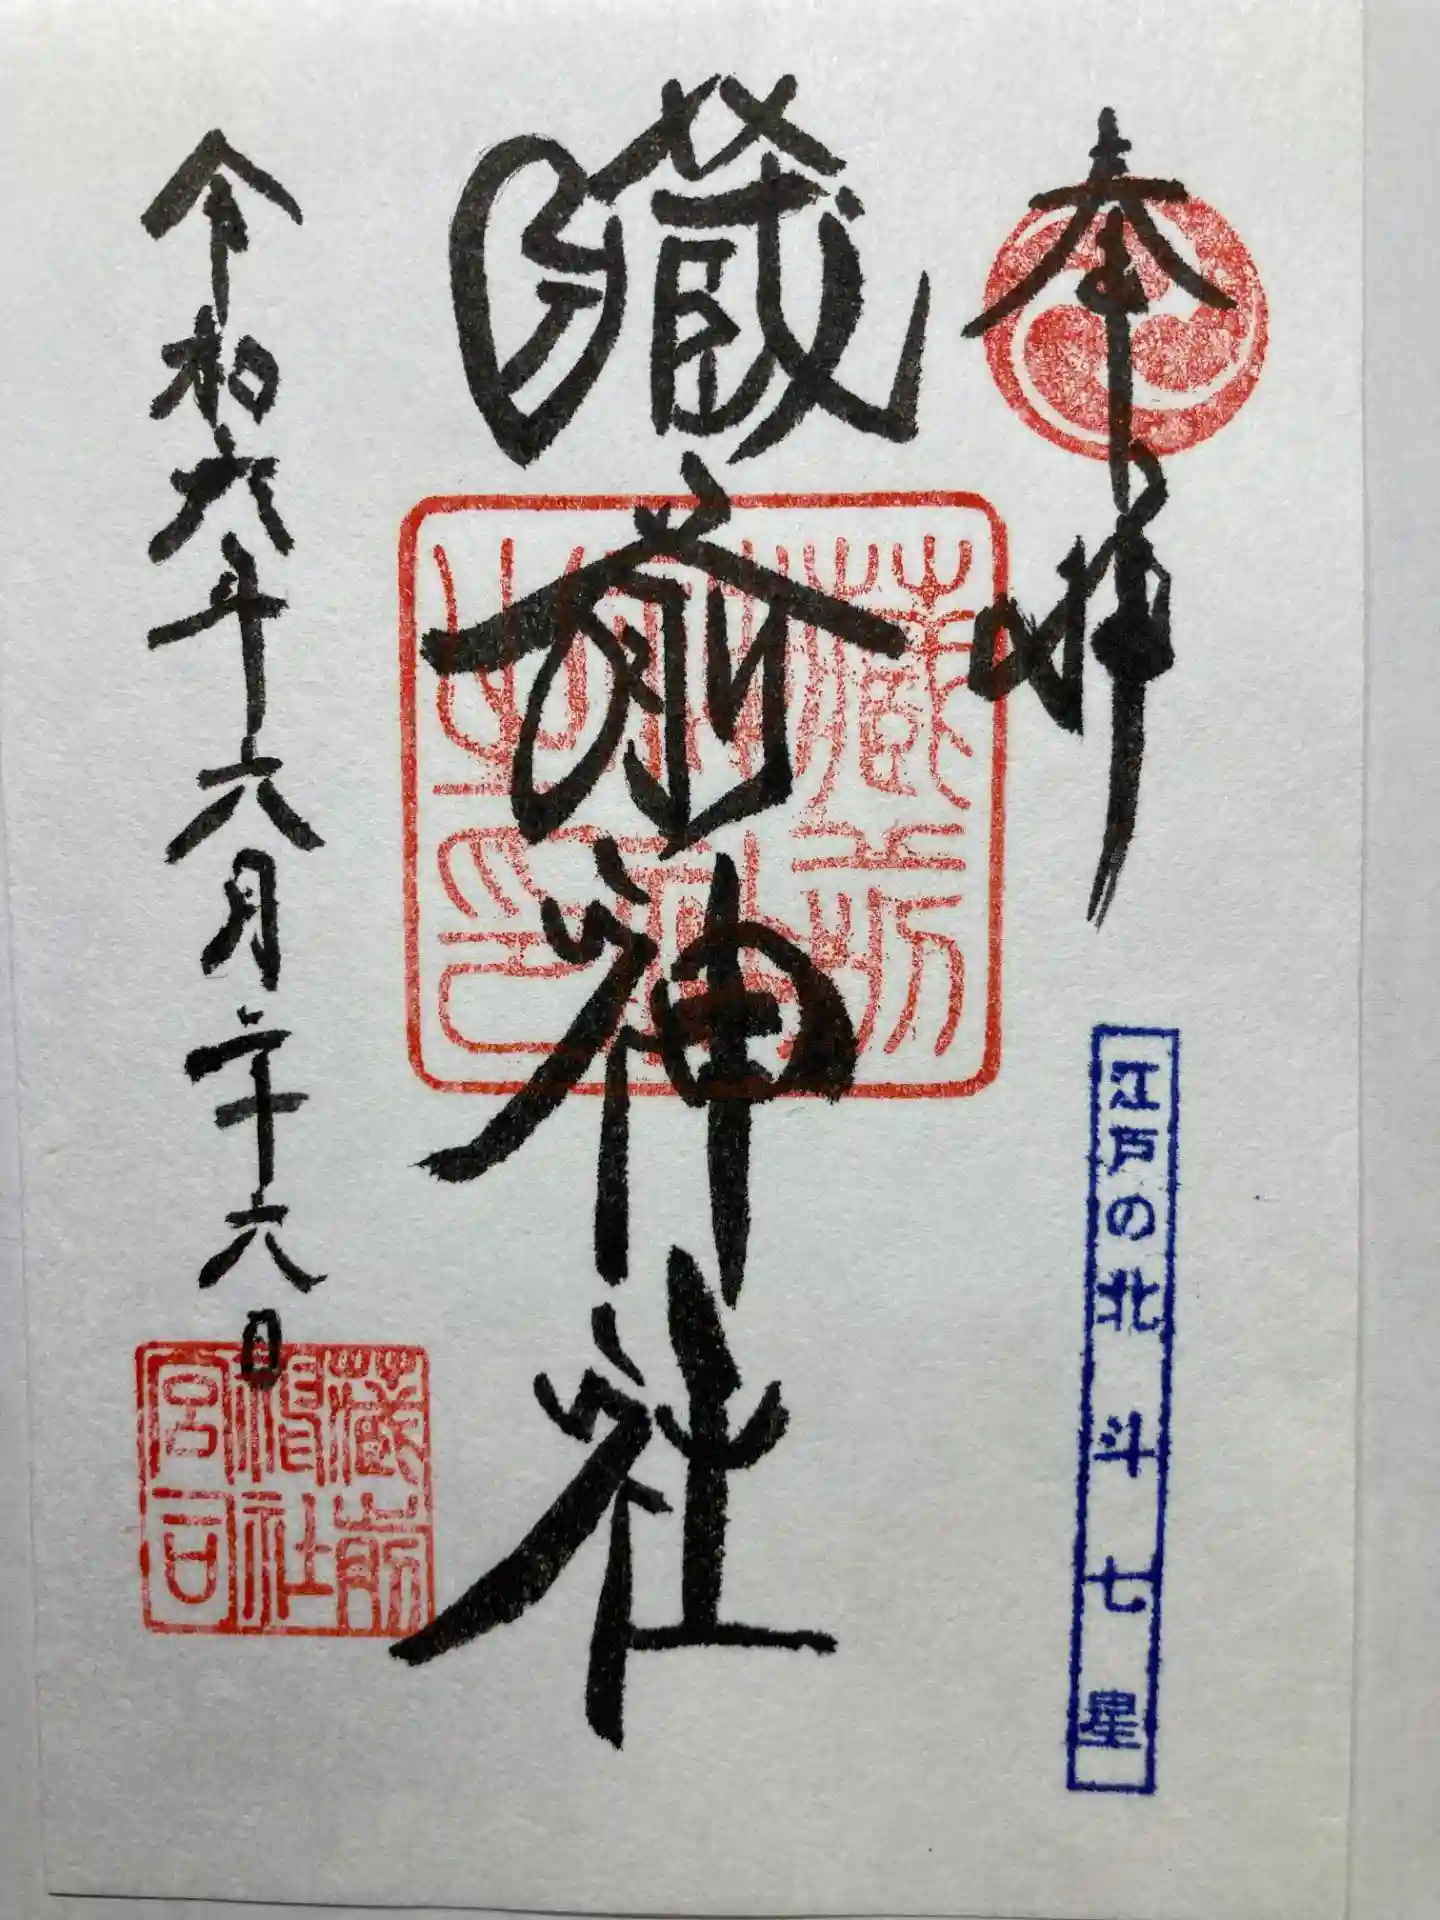 奉拝
江戸の北斗七星
蔵前神社
蔵前神社之印
令和六年六月二十六日
蔵前神社宮司